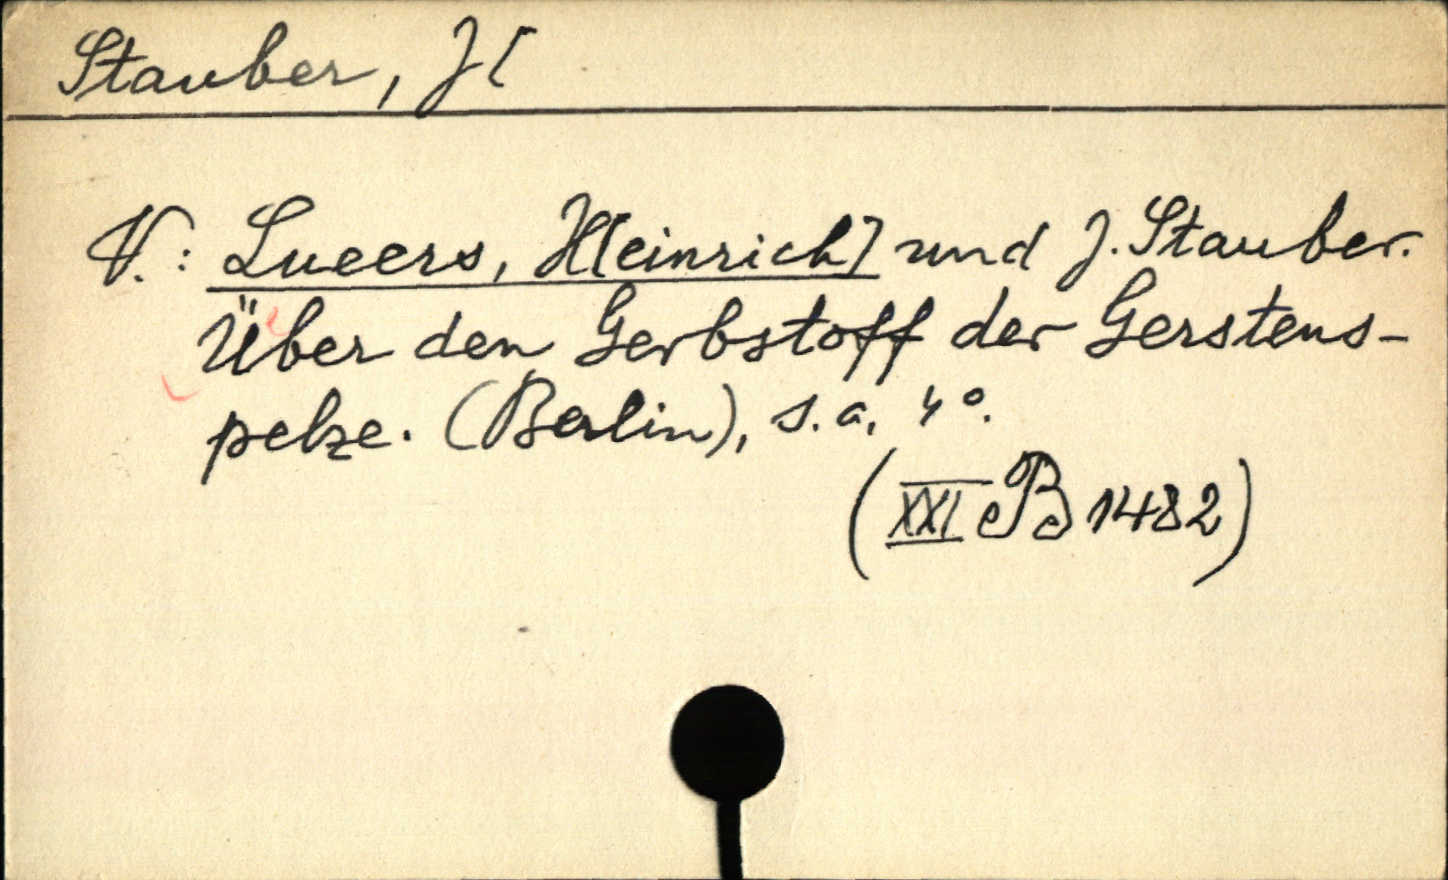 Stauber, J[
V.: Lueers, H[einrich] und J. Stauber.
Über den Gerbstoff der Gerstens-
pelze. (Berlin), s. a. 4°.
(XXI B 1482)